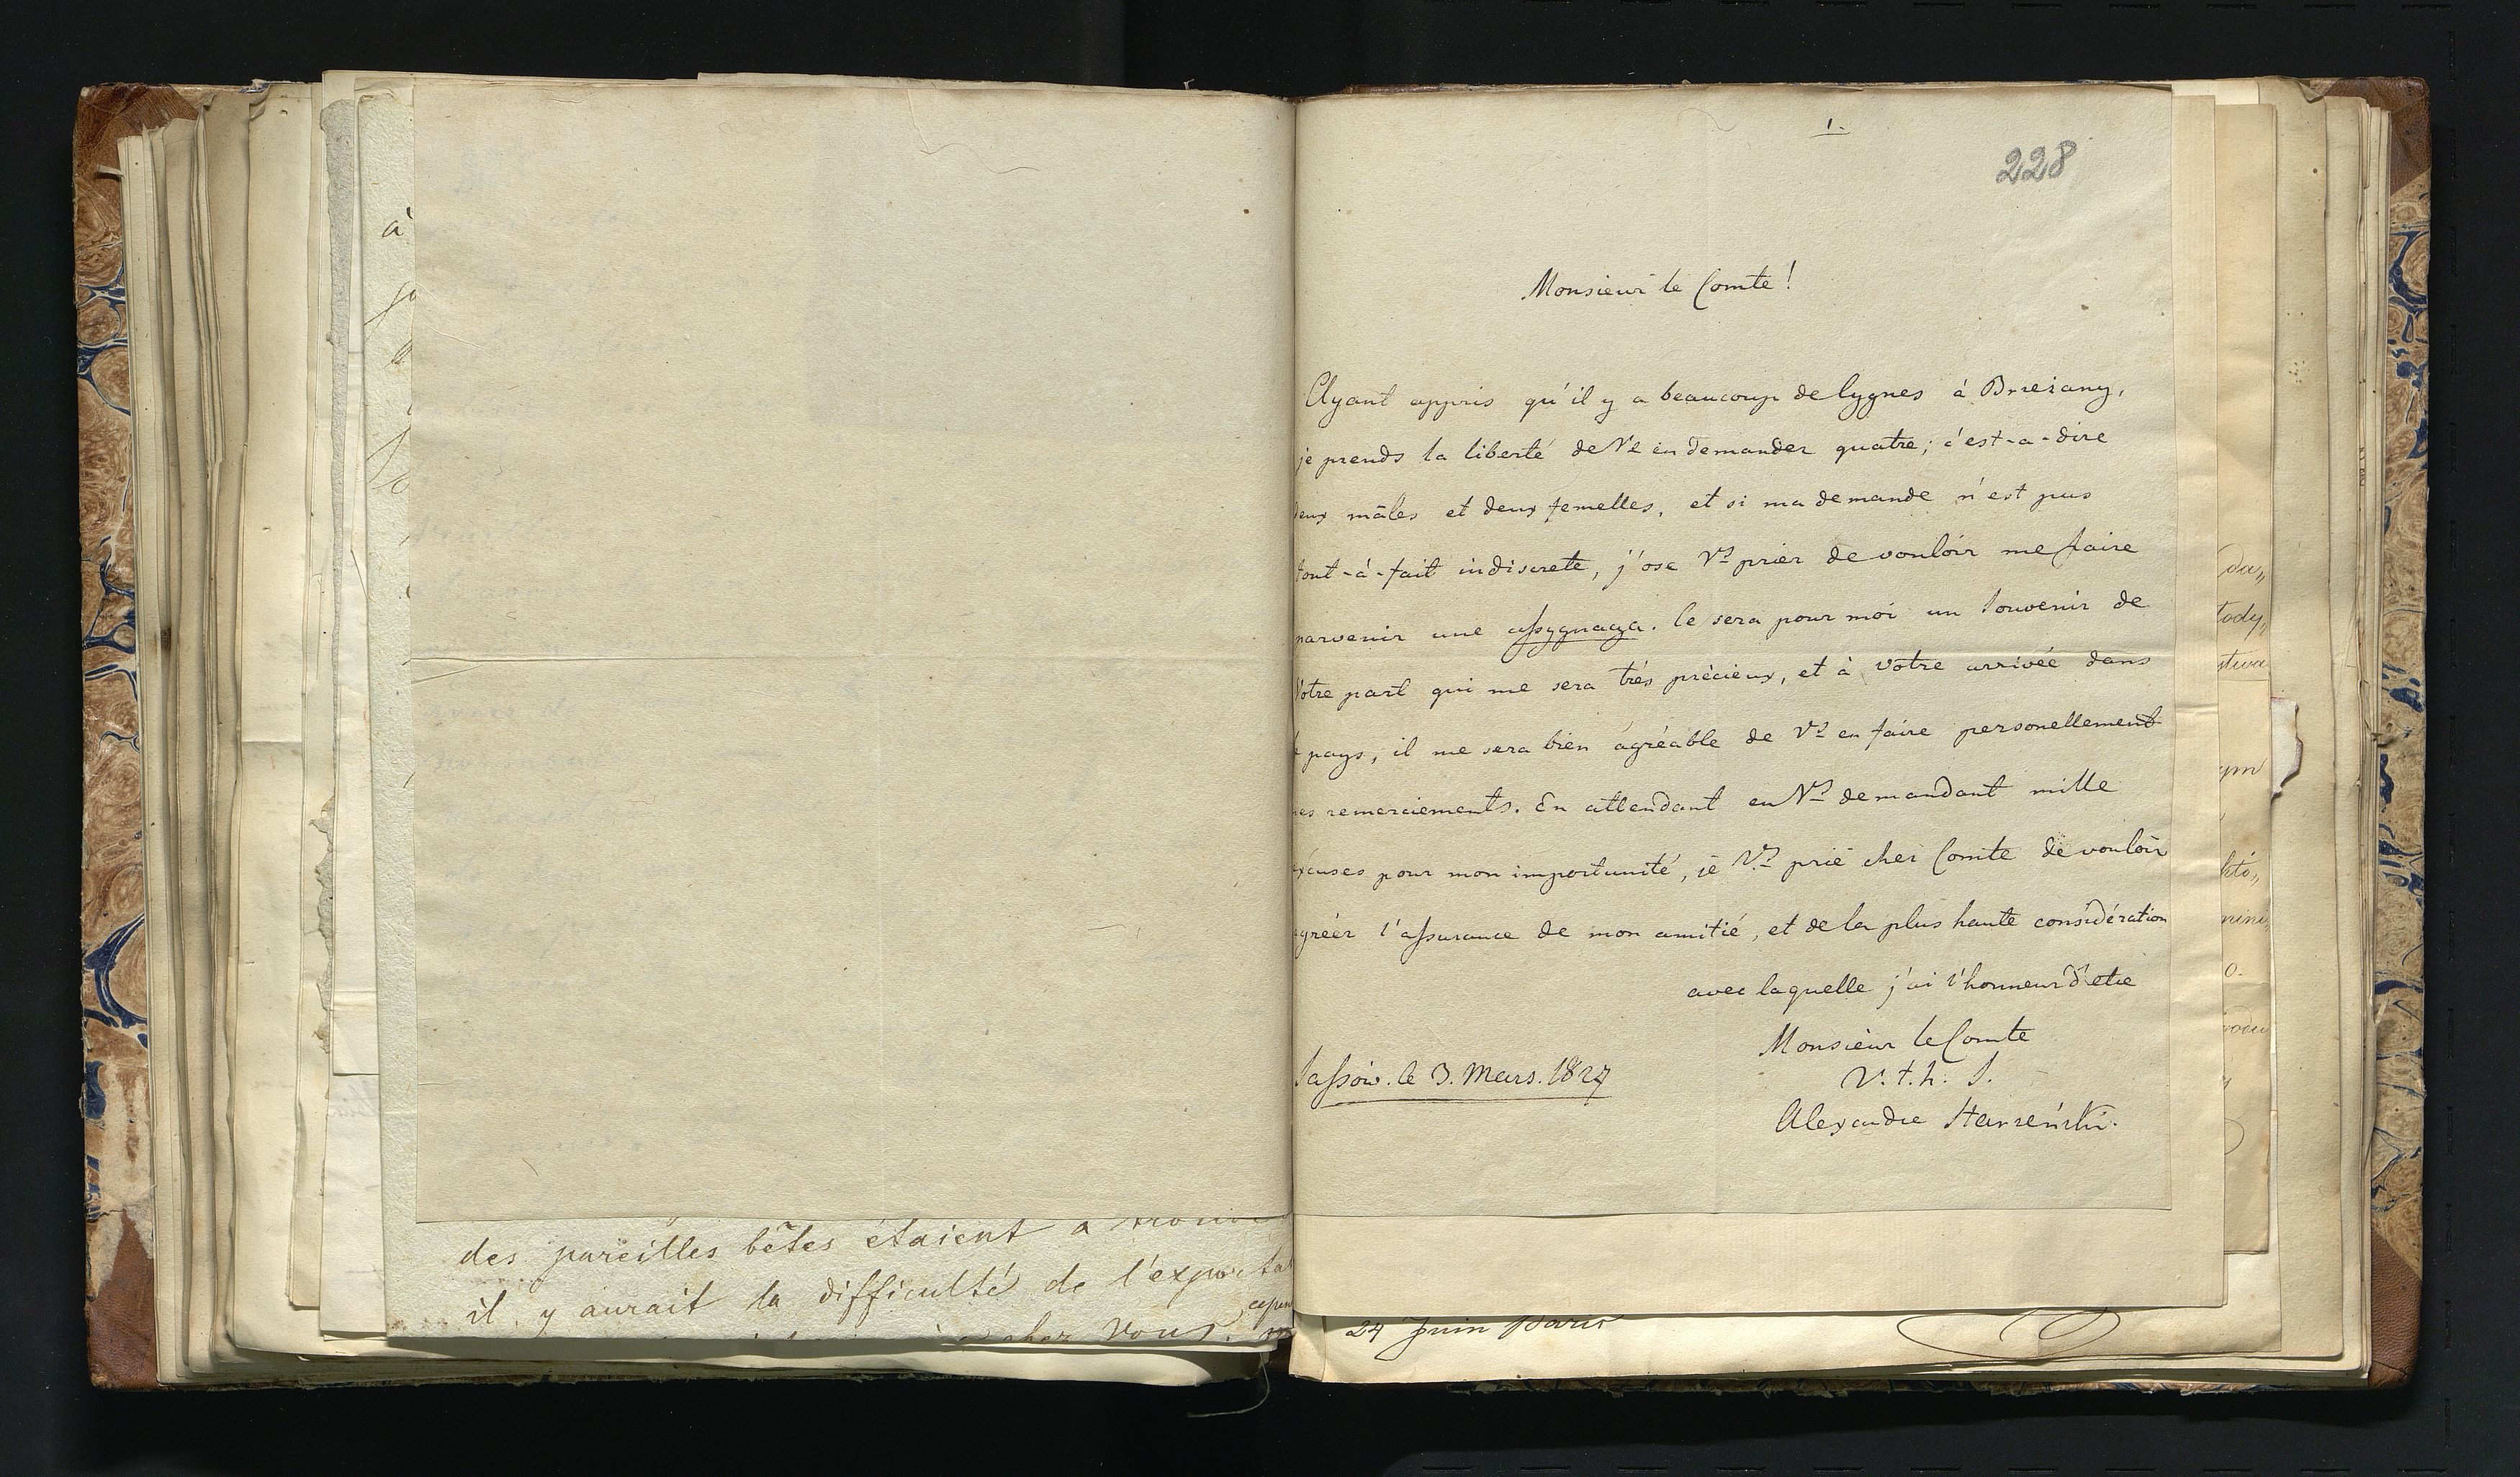 1.
228
Monsieur le Comte!
Ayant appris qu'il y a beaucoup de Cygnes à Brzeżany,
je prends la liberté de Vs en demander quatre; c'est-a-dire
deux mâles et deux femelles, et si ma demande n'est pas
tout-à-fait indiscrete, j'ose Vs prier de vouloir me faire
parvenir une assygnacya. Ce sera pour moi un Souvenir de
Votre part qui me sera très précieux, et à Votre arrivée dans
le pays, il me sera bien agréable de Vs en faire personellement
mes remerciements. En attendant en Vs demandant mille
excuses pour mon importunité, je Vs prie cher Comte de vouloir
agréer l'assurance de mon amitié, et de la plus haute considération
avec laquelle j'ai l'honneur d'etre
Monsieur le Comte
V. t. h. S.
Sassów. le 3. Mars. 1827
Alexandre Starzeński.
des pareilles bêtes étaient a
il y aurait la difficulté de l'exporta
chez Vous.
24 Juin Paris